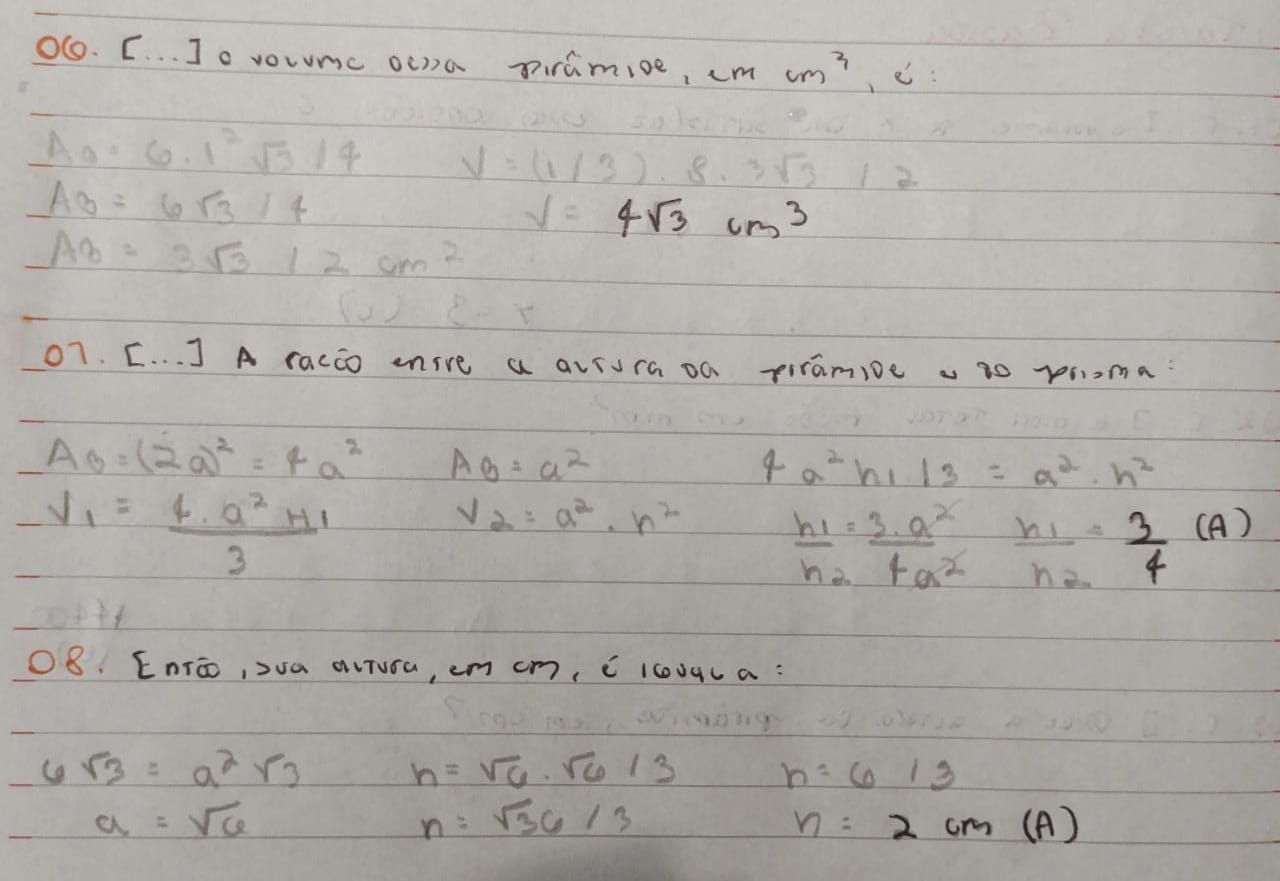 06. [...] o volume dessa pirâmide, em cm³, é:
AB = 6.1²√3/4 V = (1/3).8.3√3/2
AB = 6√3/4 V = 4√3 cm³
AB = 3√3/2 cm²
07. [...] A racão entre a altura da pirâmide e do prisma:
AB = (2a)² = 4a² AB = a² 4a²h1/3 = a².h²
V1 = 4.a²H1/3 V2 = a².h² h1/h2 = 3.a²/4a² h1/h2 = 3/4 (A)
08. Então, sua altura, em cm, é igual a:
6√3 = a²√3 h = √6.√6/3 h = 6/3
a = √6 h = √36/3 h = 2 cm (A)